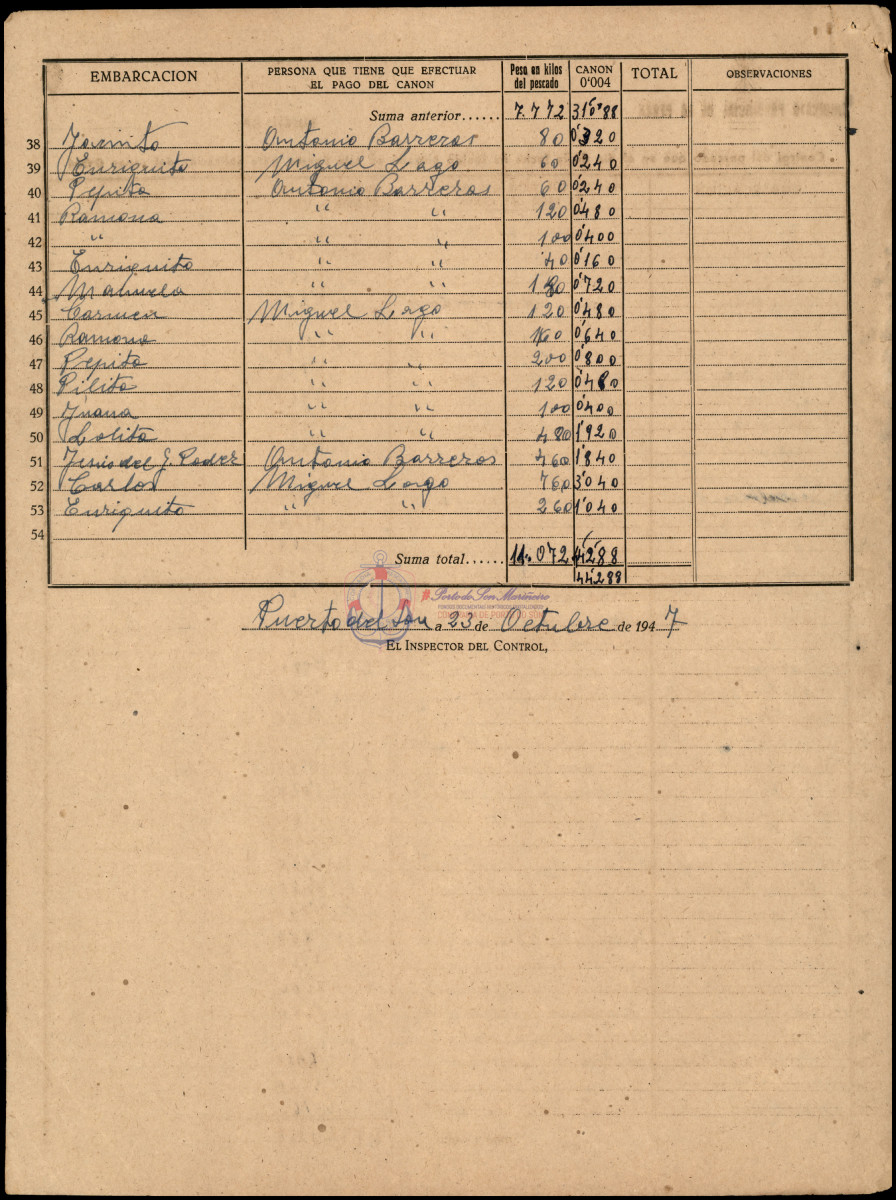 EMBARCACION PERSONA QUE TIENE QUE EFECTUAR EL PAGO DEL CANON Peso en kilos del pescado CANON 0'004 TOTAL OBSERVACIONES
Suma anterior...... 7.772 31'088
38 Javito Antonio Barreras 80 0'320
39 Enriquito Miguel Lago 60 0'240
40 Pepita Antonio Barreras 60 0'240
41 Ramona " " 120 0'480
42 " " " 100 0'400
43 Enriquito " " 40 0'160
44 Manuela " " 180 0'720
45 Carmen Miguel Lago 120 0'480
46 Ramona " " 160 0'640
47 Pepita " " 200 0'800
48 Pilita " " 120 0'480
49 Juana " " 100 0'400
50 Lolita " " 480 1'920
51 Jesús del G. Poder Antonio Barreros 460 1'840
52 Carlos Miguel Lago 760 3'040
53 Enriquito " " 260 1'040
54
Suma total...... 11.072 44'288
44'288
Porto do Son Mariñeiro
Puerto del Son a 23 de Octubre de 1947
EL INSPECTOR DEL CONTROL,